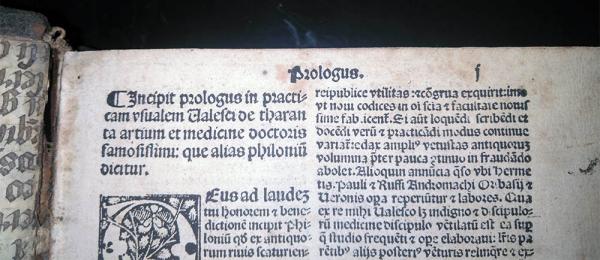 Prologus. j
Incipit prologus in practi-
cam vsualem Ualesci de tharan
ta artium et medicine doctoris
famosissimi: que alias philoniũ
dicitur.
Eus ad laudez
tui honorem & bene-
dictionẽ incipit Phi-
loniũ qđ ex antiquo-
rum riuis scaturien-
reipublice vtilitas &
vt noui codices in oĩ scia & facultate nouis
sime fab. Si aũt loquẽdi scribẽdi et
docẽdi verũ & practicãdi modus continue
amplius vetustas antiquorũ
volumina pauca in fraudãdo
abolet. Alioquin annũcia qso vbi Herme
tis. Pauli & Ruffi Andromachi Oribasij &
Ueronis opa reperiũtur & labores. Cũa
ex re mihi Ualesco lz indigno & discipulo-
rũ medicine discipulo vtilatũ est ca sup
q studio frequẽti & ope elaboraui:
alijs posteris vẽturis relinq̃re & ex-